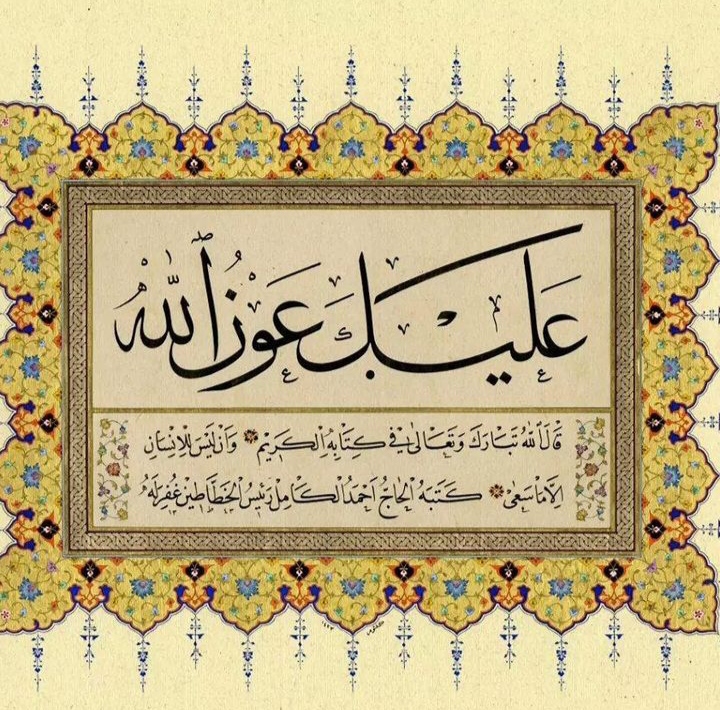 عَلَيْكَ عَوْنُ اللّٰهِ
قَالَ اللّٰهُ تَبَارَكَ وَتَعَالٰى فِي كِتَابِهِ الْكَرِيمِ وَاَنْ لَيْسَ لِلْاِنْسَانِ
اِلَّا مَا سَعٰى كَتَبَهُ الْحَاجُّ اَحْمَدُ الْكَامِلُ رَئِيسُ الْخَطَّاطِينَ غُفِرَ لَهُ